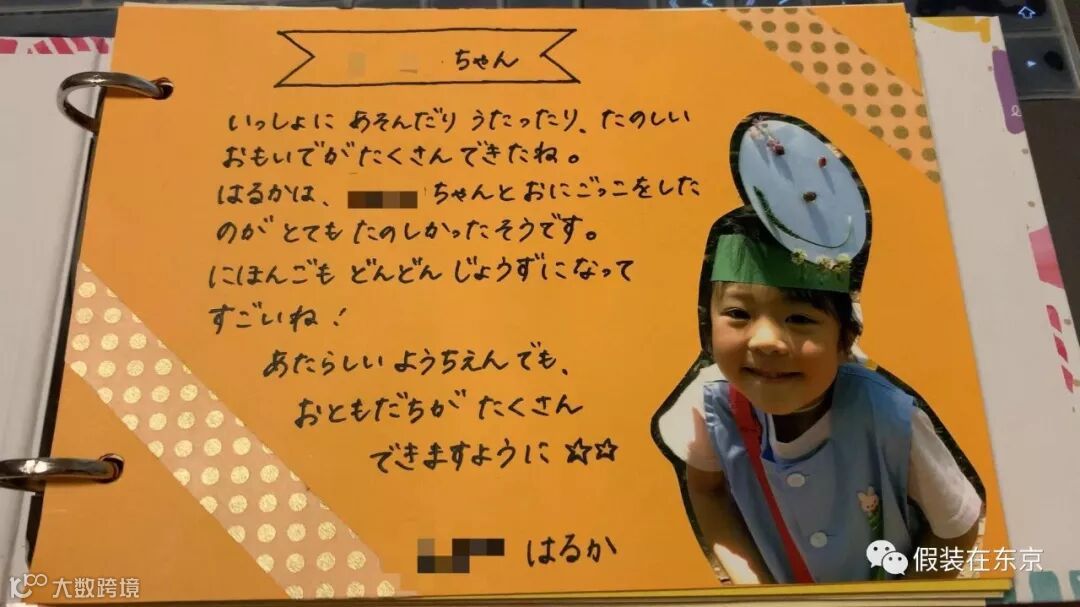 ちゃん
いっしょに あそんだり うたったり、たのしい
おもいでが たくさん できたね。
はるかは、 ちゃんと おにごっこをした
のが とても たのしかったそうです。
にほんごも どんどん じょうずになって
すごいね!
あたらしい ようちえん でも、
おともだちが たくさん
できますように ☆☆
はるか
假装在东京
大数跨境